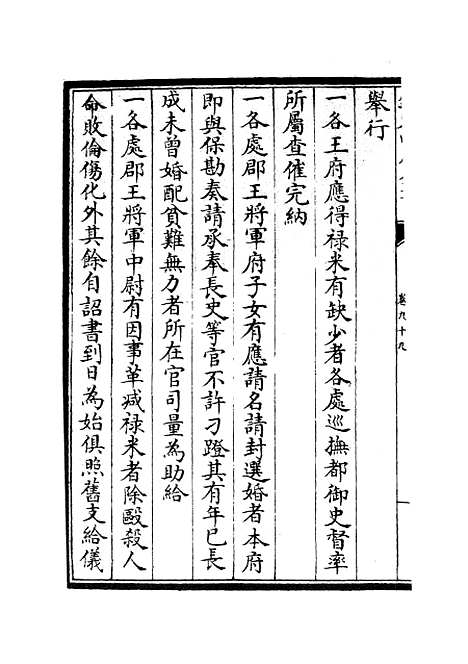 卷九十九
舉行
一各王府應得禄米有缺少者各處巡撫都御史督率
所屬查催完納
一各處郡王將軍府子女有應請名請封選婚者本府
即與保勘奏請承奉長史等官不許刁蹬其有年已長
成未曾婚配貧難無力者所在官司量為助給
一各處郡王將軍中尉有因事革减禄米者除毆殺人
命敗倫傷化外其餘自詔書到日為始俱照舊支給儀